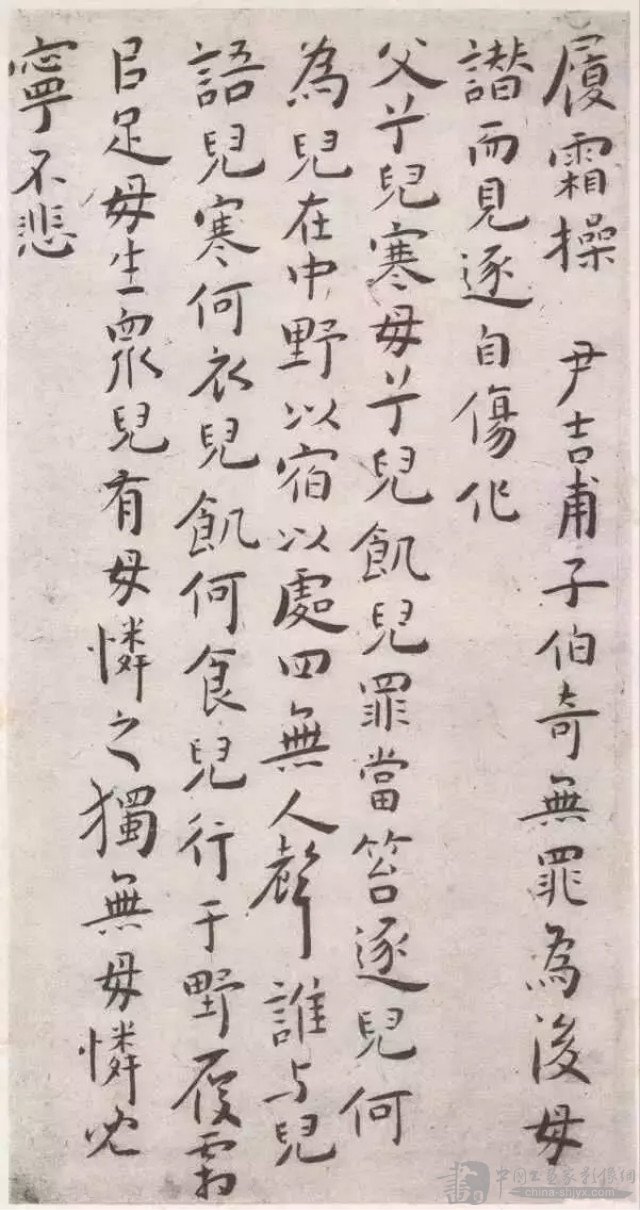 履霜操 尹吉甫子伯奇無罪為後母
譖而見逐自傷作
父兮兒寒母兮兒飢兒罪當笞逐兒何
為兒在中野以宿以處四無人聲誰与兒
語兒寒何衣兒飢何食兒行于野履霜
以足母生眾兒有母憐之獨無母憐兒
寧不悲
中国书画家影像網
china-shjyx.com